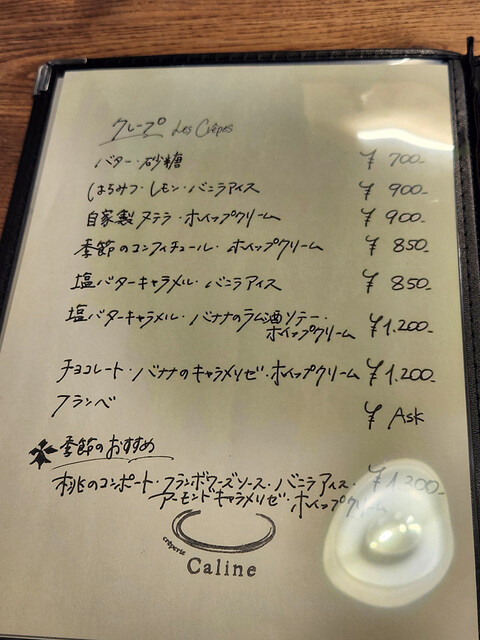 クレープ Les Crêpes
バター・砂糖 ¥700-
はちみつ・レモン・バニラアイス ¥900-
自家製ヌテラ・ホイップクリーム ¥900-
季節のコンフィチュール・ホイップクリーム ¥850-
塩バターキャラメル・バニラアイス ¥850-
塩バターキャラメル・バナナのラム酒ソテー・
ホイップクリーム ¥1.200-
チョコレート・バナナのキャラメリゼ・ホイップクリーム ¥1.200-
フランベ ¥Ask
季節のおすすめ
桃のコンポート・フランボワーズソース・バニラアイス・ ¥1.300-
アーモンドキャラメリゼ・ホイップクリーム
crêperie
Caline